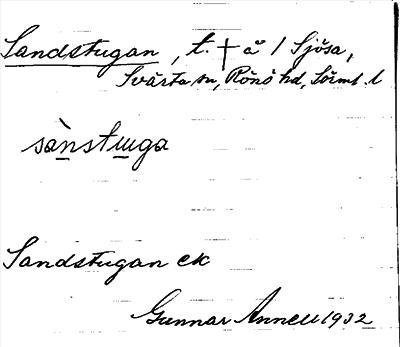 Sandstugan, t. † å 1 Sjösa,
Svärta sn, Rönö hd, Söiml. l
sànstɯga
Sandstugan ek
Gunnar Annell 1932